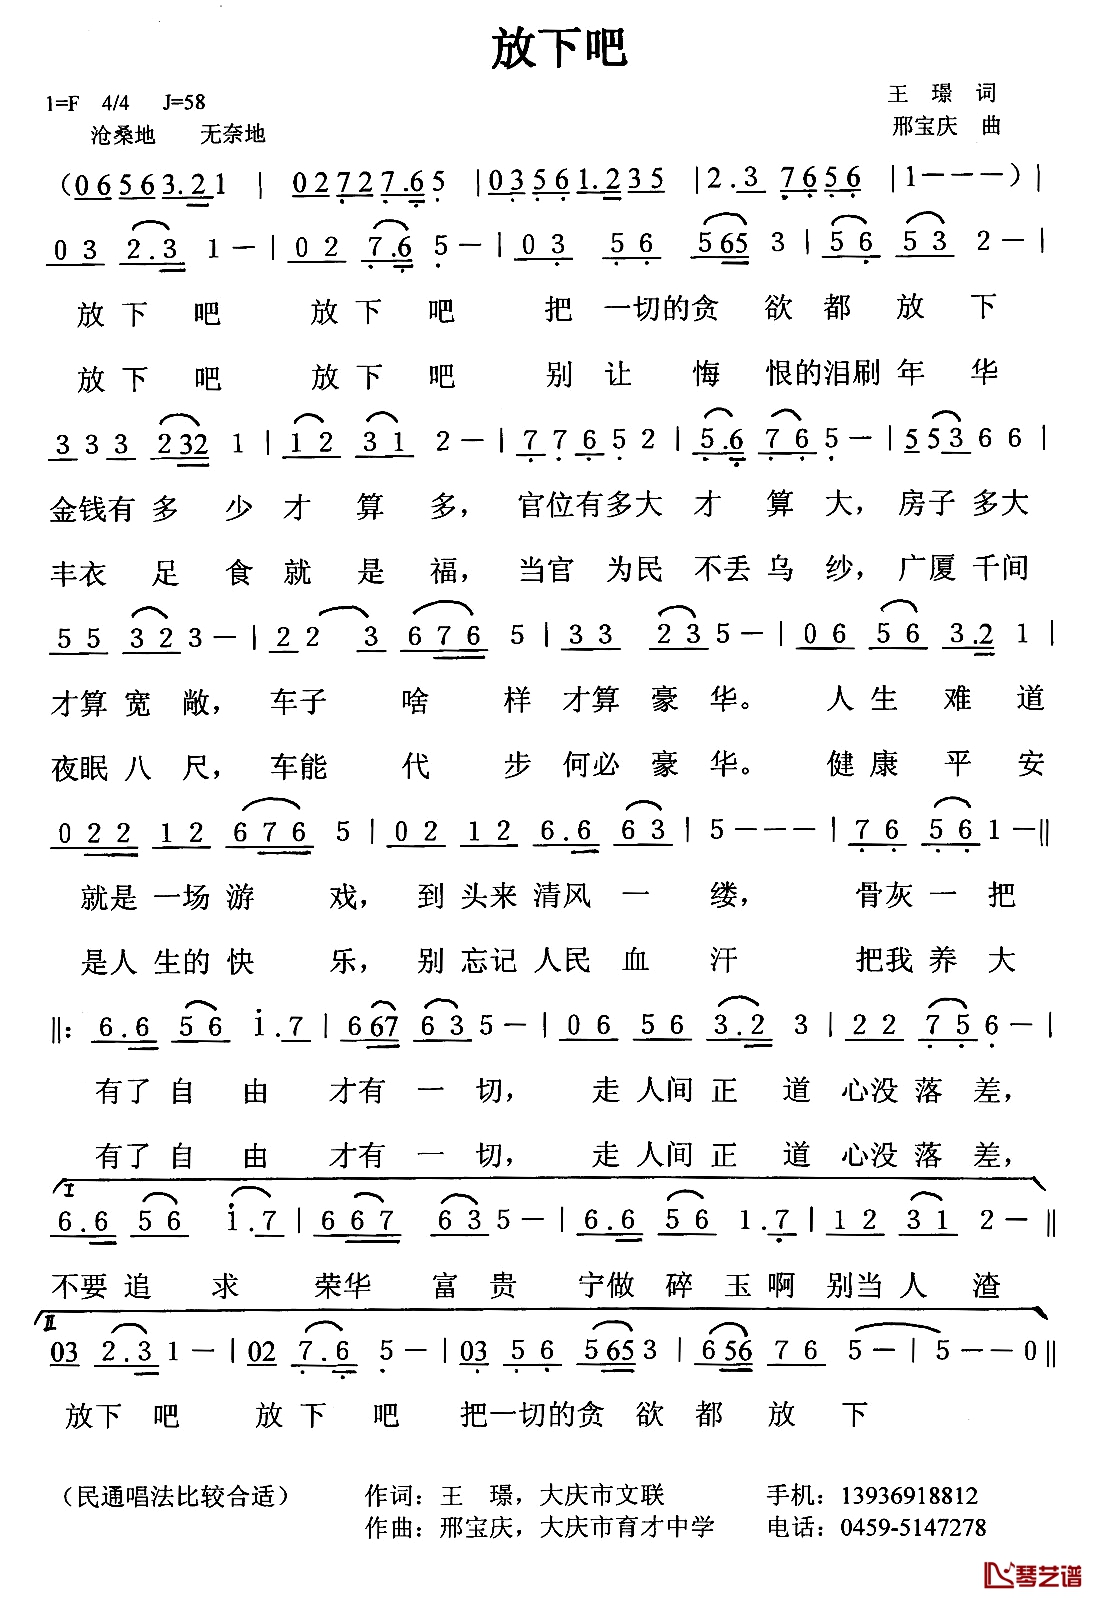 放下吧
1=F 4/4 J=58
王 璟 词
沧桑地 无奈地
邢宝庆 曲
(0 6 5 6 3.2 1 | 0 2 7 2 7.6 5 | 0 3 5 6 1.2 3 5 | 2.3 7 6 5 6 | 1 - - -) |
0 3 2.3 1 - | 0 2 7.6 5 - | 0 3 5 6 5 6 5 3 | 5 6 5 3 2 - |
放 下 吧 放 下 吧 把 一切的贪 欲 都 放 下
放 下 吧 放 下 吧 别 让 悔 恨的泪刷 年 华
3 3 3 2 3 2 1 | 1 2 3 1 2 - | 7 7 6 5 2 | 5.6 7 6 5 - | 5 5 3 6 6 |
金钱有 多 少 才 算 多， 官位有多大 才 算 大， 房子 多大
丰衣 足 食 就 是 福， 当官 为民 不丢 乌 纱， 广厦 千间
5 5 3 2 3 - | 2 2 3 6 7 6 5 | 3 3 2 3 5 - | 0 6 5 6 3.2 1 |
才算 宽 敞， 车子 啥 样 才算 豪 华。 人 生 难 道
夜眠 八 尺， 车能 代 步 何必 豪 华。 健 康 平 安
0 2 2 1 2 6 7 6 5 | 0 2 1 2 6.6 6 3 | 5 - - - | 7 6 5 6 1 - ||
就是 一场 游 戏， 到 头来 清风 一 缕， 骨灰 一 把
是人 生的 快 乐， 别 忘记 人民 血 汗 把我 养 大
||: 6.6 5 6 i.7 | 6 6 7 6 3 5 - | 0 6 5 6 3.2 3 | 2 2 7 5 6 - |
有了 自 由 才有 一 切， 走 人间 正 道 心没 落 差，
有了 自 由 才有 一 切， 走 人间 正 道 心没 落 差，
I
6.6 5 6 i.7 | 6 6 7 6 3 5 - | 6.6 5 6 1.7 | 1 2 3 1 2 - ||
不要 追 求 荣华 富 贵 宁做 碎 玉 啊 别当 人 渣
II
0 3 2.3 1 - | 0 2 7.6 5 - | 0 3 5 6 5 6 5 3 | 6 5 6 7 6 5 - | 5 - - 0 ||
放下 吧 放 下 吧 把一切的贪 欲 都 放 下
（民通唱法比较合适） 作词：王 璟，大庆市文联 手机：13936918812
作曲：邢宝庆，大庆市育才中学 电话：0459-5147278
琴艺谱